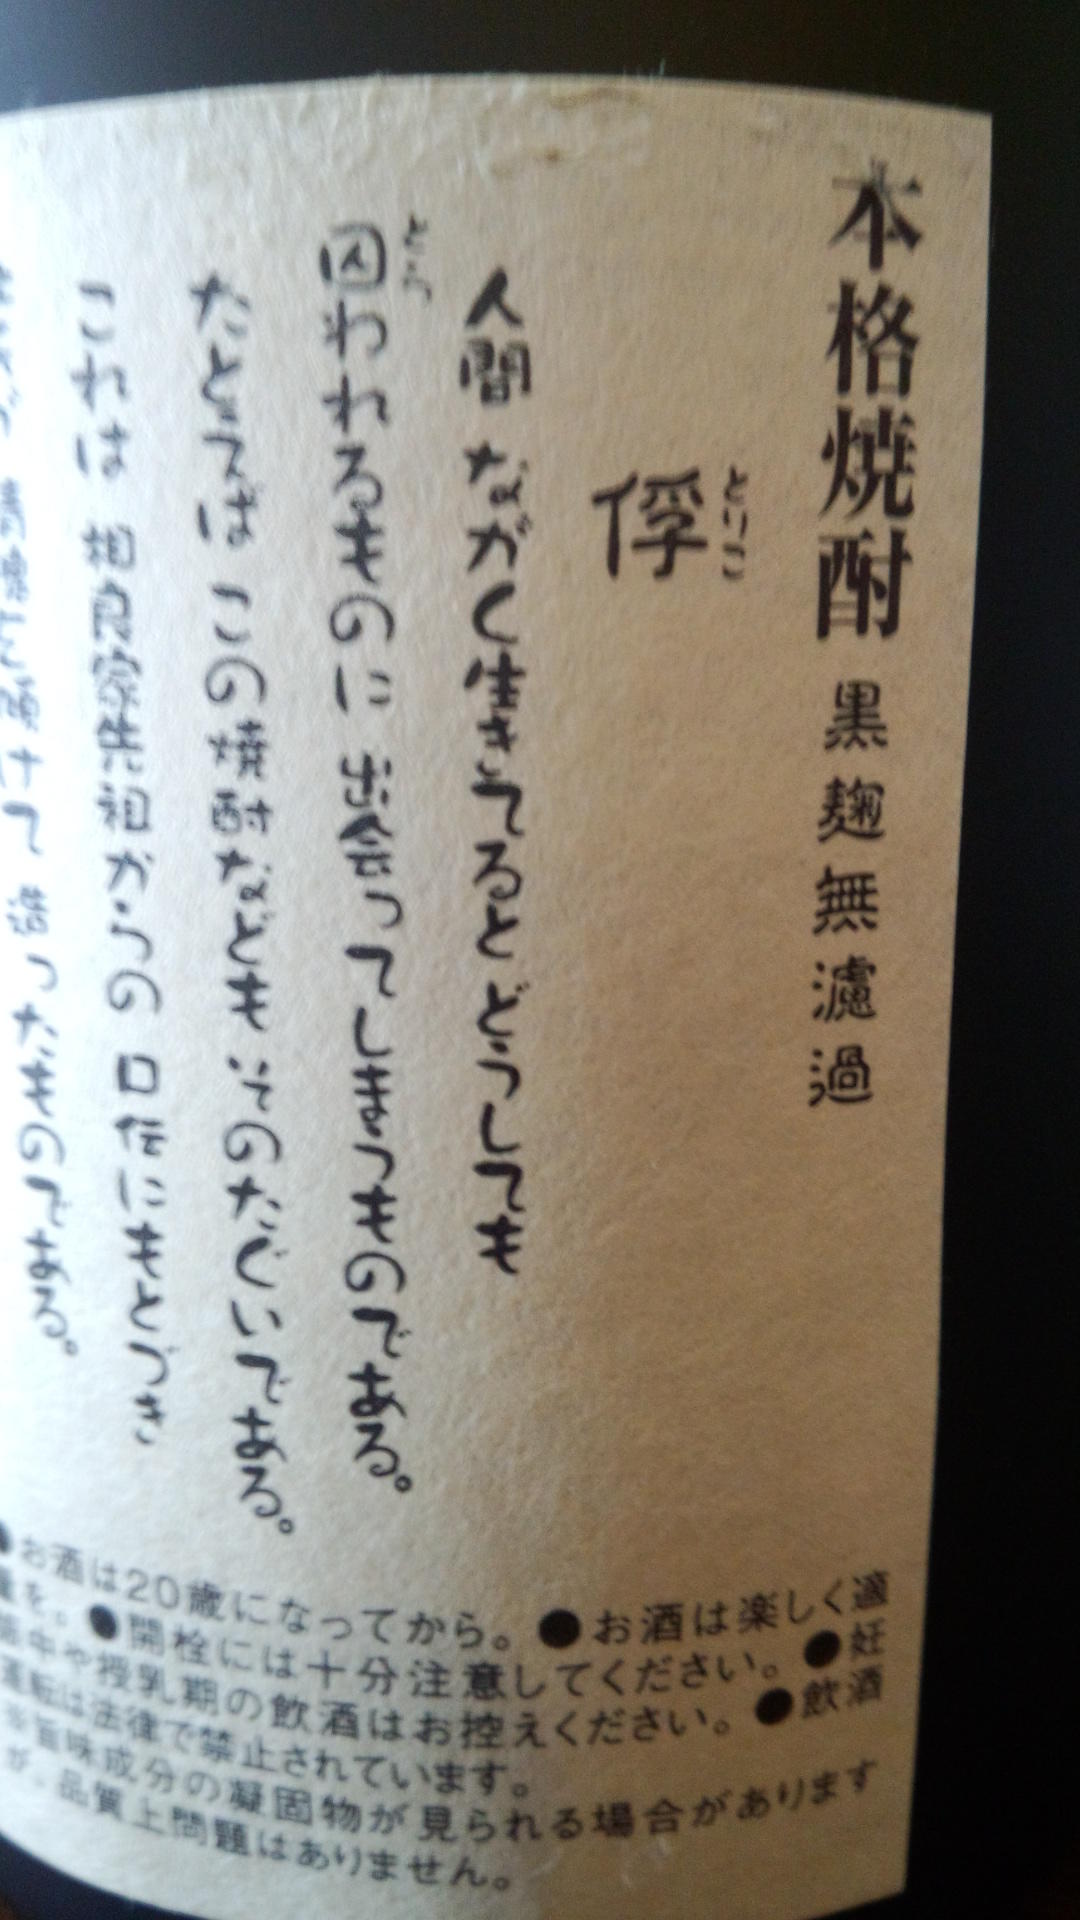 本格焼酎 黒麹無濾過
とりこ
俘
人間 ながく生きてると どうしても
とら
囚われるものに 出会ってしまうものである。
たとえば この焼酎なども いそのたぐいである。
これは 相良家先祖からの 口伝にもとづき
情熱を傾けて 造ったものである。
●お酒は20歳になってから。●お酒は楽しく適
量を。●開栓には十分注意してください。●妊
娠中や授乳期の飲酒はお控えください。●飲酒
運転は法律で禁止されています。
※旨味成分の凝固物が見られる場合があります
が、品質上問題はありません。